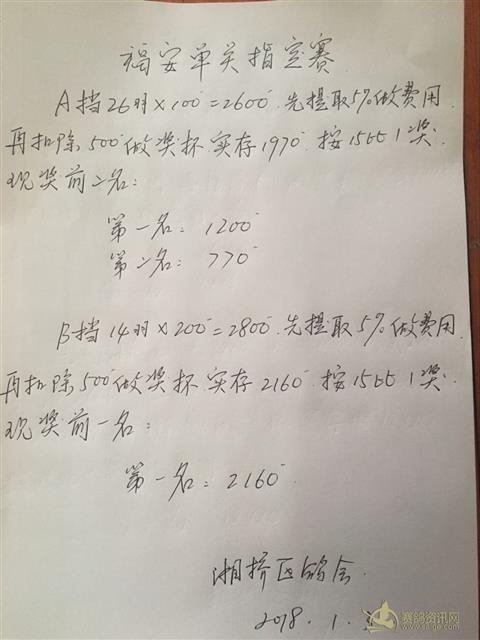 福安单关指定赛
A挡26羽×100=2600 先提取5%做费用
再扣除500做奖杯 实存1970 按15比1奖
现奖前二名:
第一名: 1200
第二名: 770
B挡14羽×200=2800 先提取5%做费用
再扣除500做奖杯 实存2160 按15比1奖
现奖前一名:
第一名: 2160
湘桥区鸽会
2018.1.
赛鸽资讯网